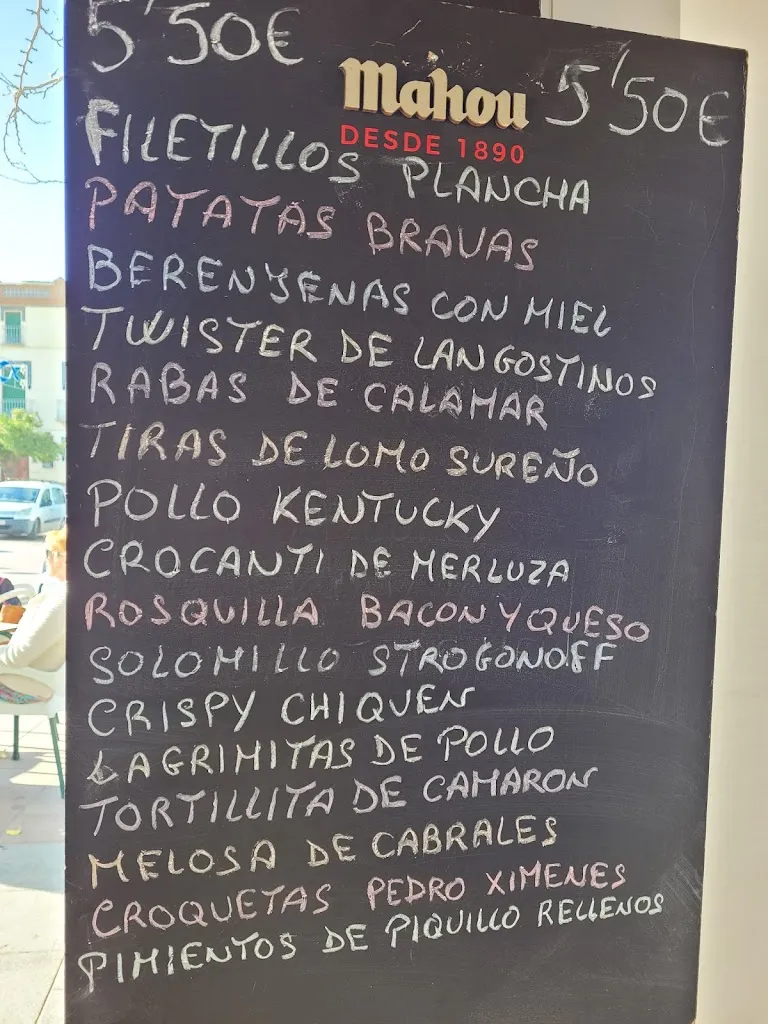 5'50€
mahou
5'50€
DESDE 1890
FILETILLOS PLANCHA
PATATAS BRAVAS
BERENJENAS CON MIEL
TWISTER DE LANGOSTINOS
RABAS DE CALAMAR
TIRAS DE LOMO SUREÑO
POLLO KENTUCKY
CROCANTI DE MERLUZA
ROSQUILLA BACON Y QUESO
SOLOMILLO STROGONOFF
CRISPY CHIQUEN
LAGRIMITAS DE POLLO
TORTILLITA DE CAMARON
MELOSA DE CABRALES
CROQUETAS PEDRO XIMENES
PIMIENTOS DE PIQUILLO RELLENOS